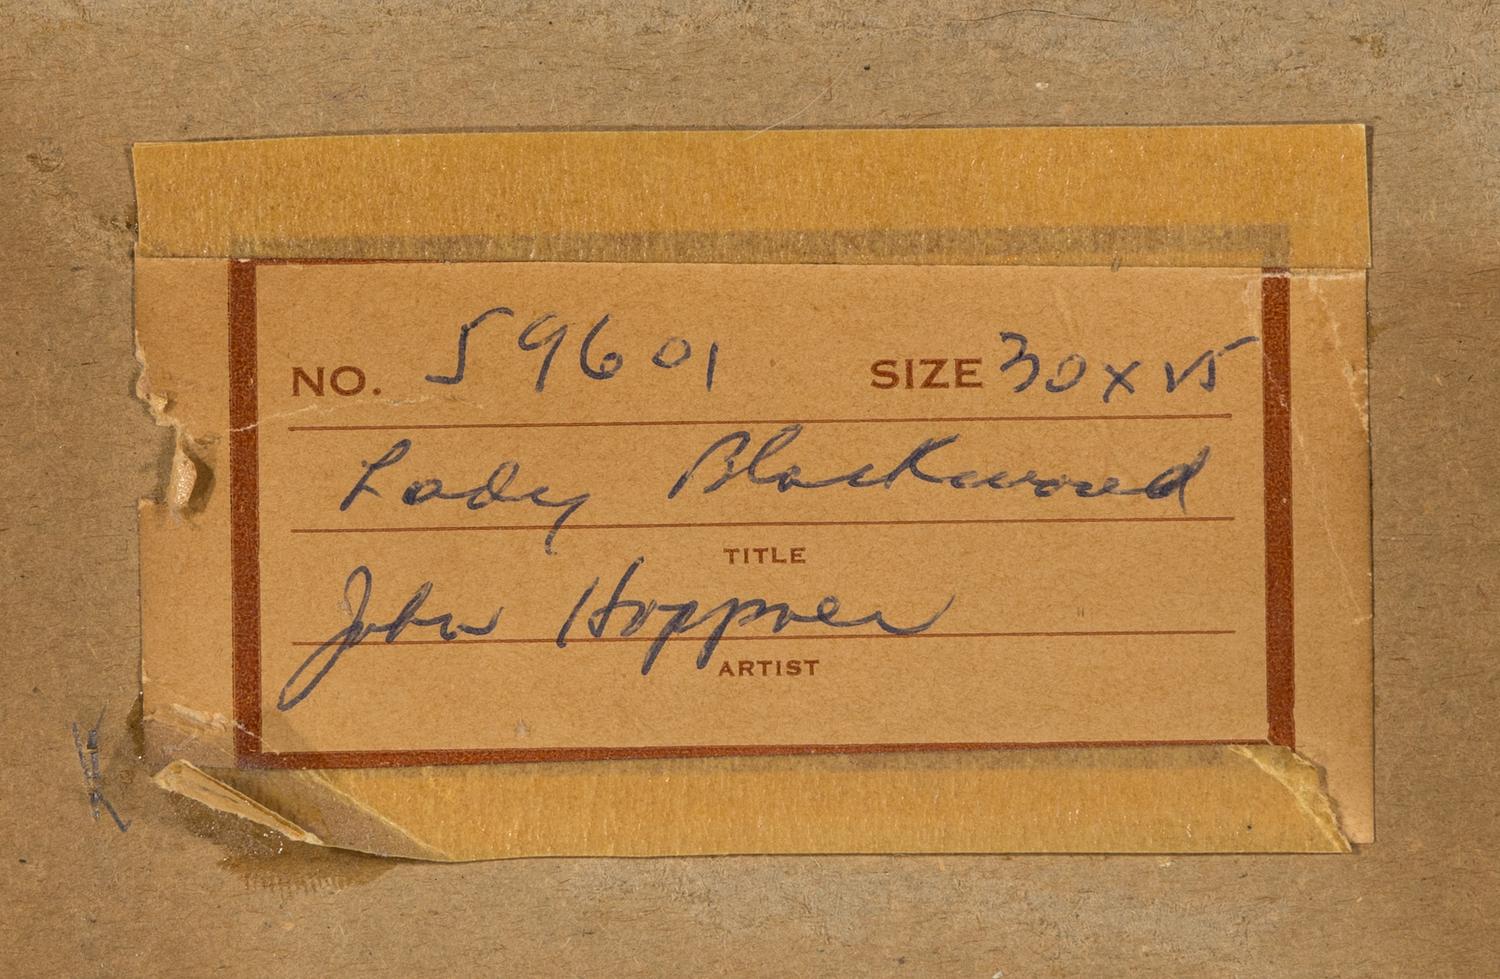 NO. 59601 SIZE 30 x 25
Lady Blackwood
TITLE
John Hoppner
ARTIST